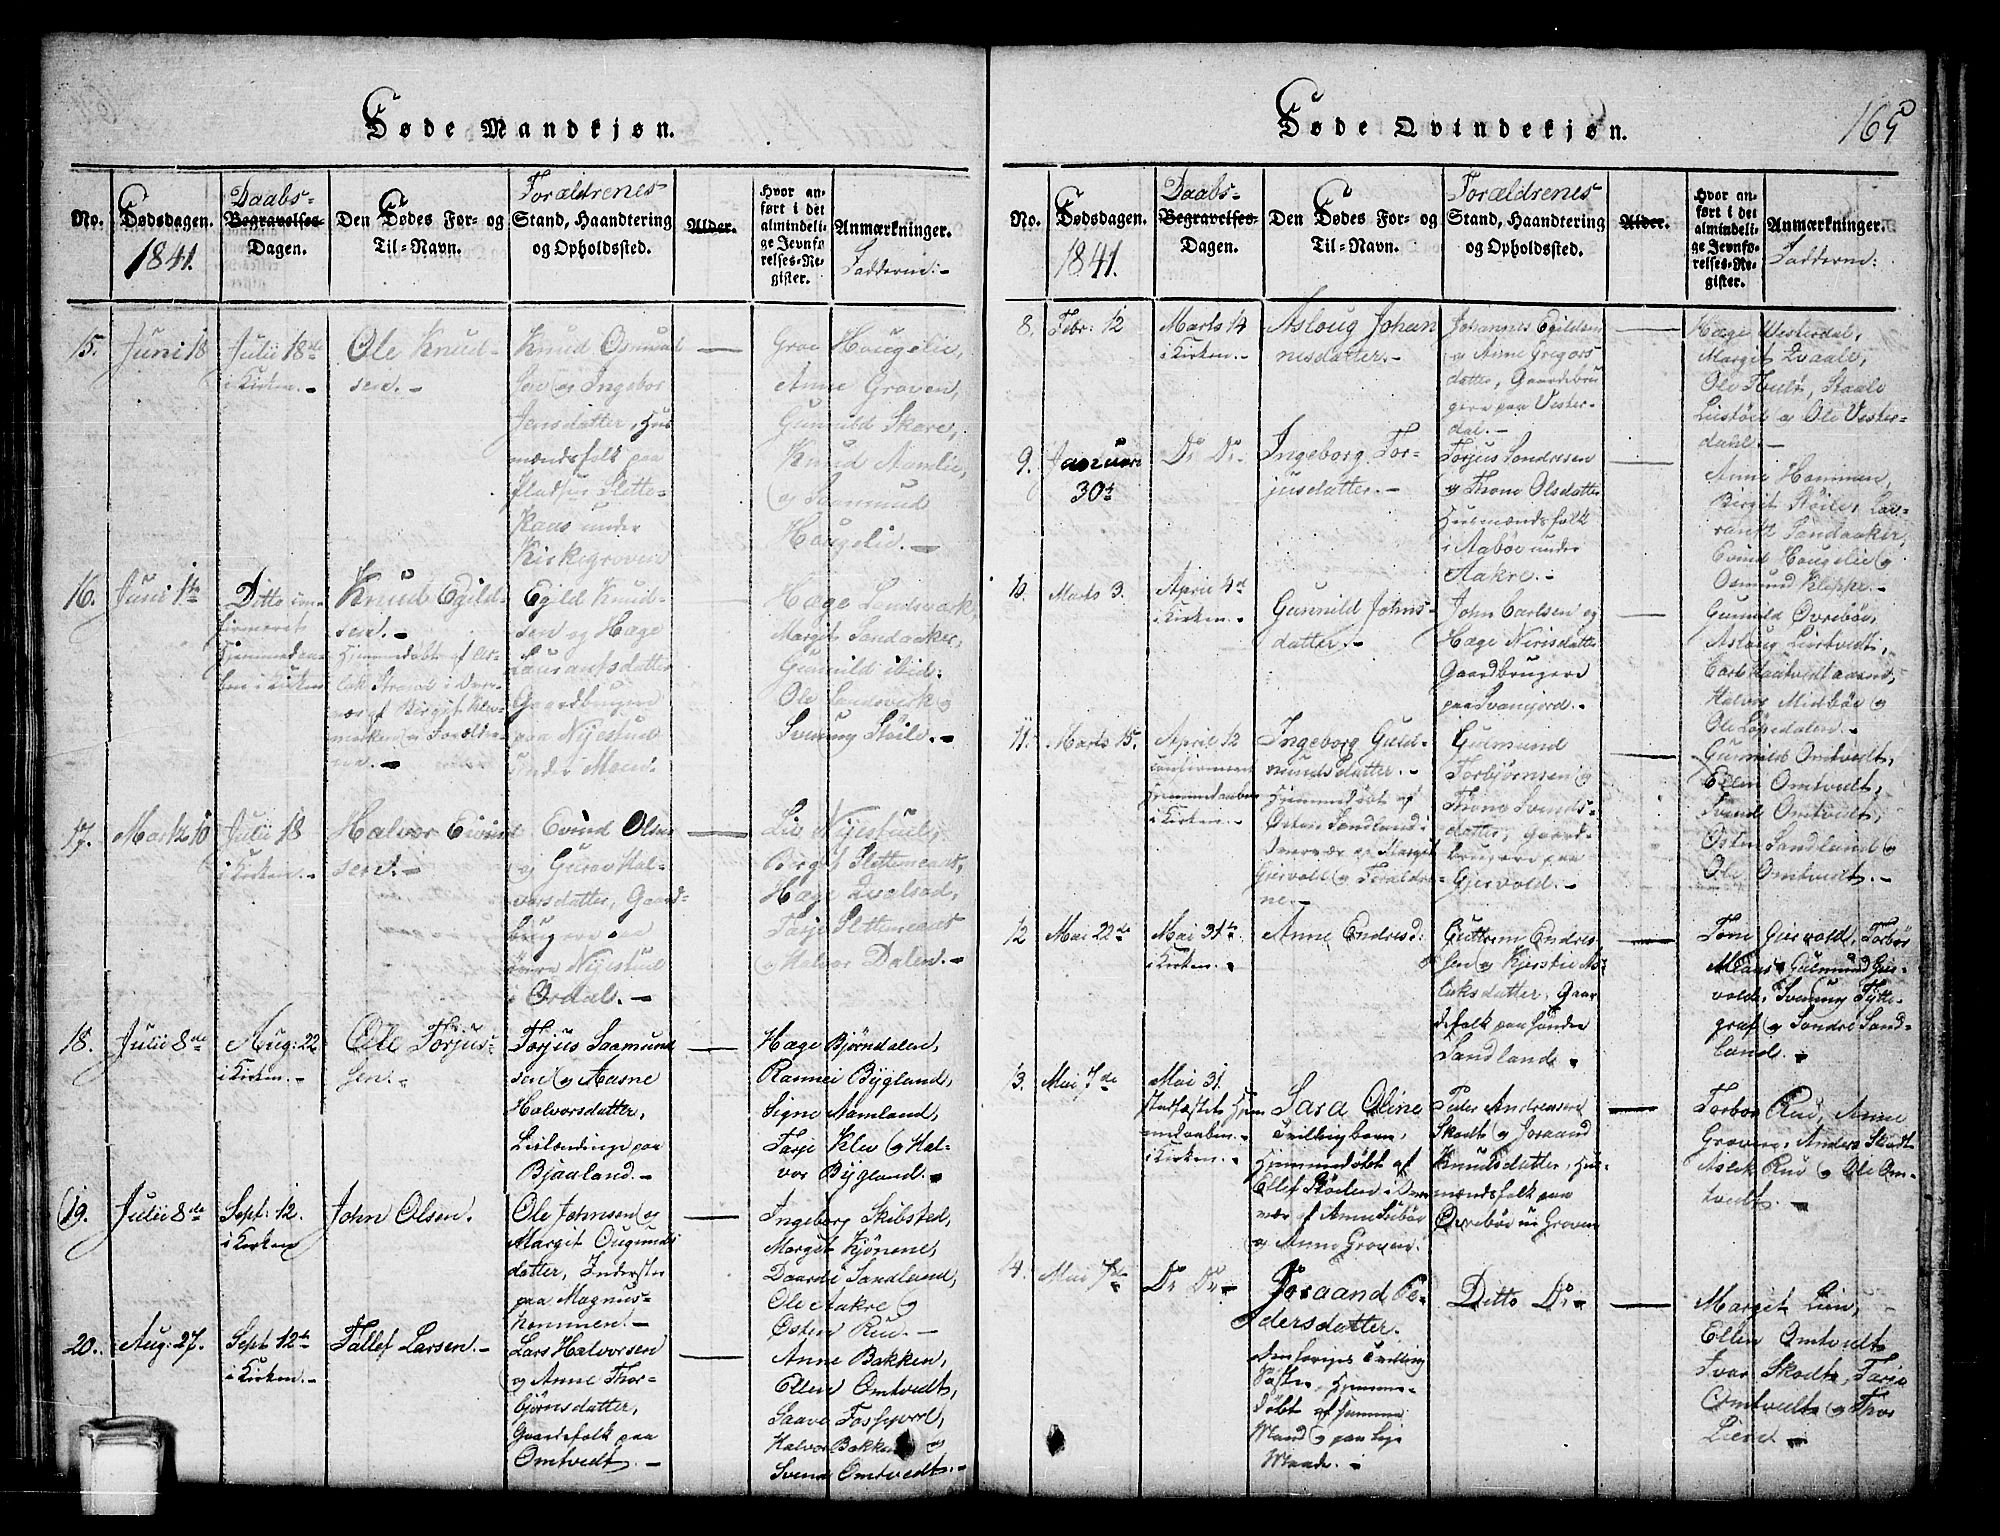 165
Døde Mandkjøn.
No.
Dødsdagen.
1841.
Daabs-
Begravelses-
Dagen.
Den Dødes For- og
Til-Navn.
Forældrenes
Stand, Haandtering
og Opholdssted.
Alder.
Hvor an-
ført i det
almindeli-
ge Jevnfø-
relses-Re-
gister.
Anmærkninger.
Fadderne:-
15.
Juni 18
Julii 18de
i Kirken.-
Ole Knud-
sen.-
Knud Osmund
sen og Ingebor
Jensdatter, Hus
mændsfolk paa
pladsen Slette-
under
Kirkegroven
Groe Hougelie,
Anne Groven,
Gunnild Skare,
Knud Aamlie,
og Saamund
Hougelie.-
16.
Juni 1te
Ditto con-
firmeret
Hjemmedaa-
ben i Kirken
Knud Egild-
sen.-
Hjemmedøbt af As-
lak Strand i Over-
vær af Birgit Klev-
og Foræld-
ne.-
Egild Knud-
sen og Hæge
Laurantsdatter
Gaardbrugere
paa Nijestud
under Moen.
Hæge Landsverk,
Margit Sandaaker,
Gunnild ibid:
Ole Landsverk og
Svenung Støile.-
17.
Marts 10
Julii 18
i Kirken.-
Halvor Eivind
sen.-
Evind Olsen
og Gurav Hal-
vorsdatter, Gaard-
brugere paa
Nijestud
i Ørdal.-
Liv Nijestuel,
Birgit Slettemeaas,
Hæge Qvalsod,
Tarje Slettemeaas
og Halvor Dalen.-
18.
Julii 8de
Aug: 22
i Kirken.-
Ole Torjus-
sen.-
Torjus Saamund
sen og Aasne
Halvorsdatter,
Leilændinge paa
Bjaaland.-
Hæge Bjørndalen,
Rannei Bygland,
Signe Aamland,
Tarje Klev og Hal-
vor Bygland.-
19.
Julii 8de
Sept: 12.
i Kirken
John Olsen.
Ole Johnsen og
Margit Ougunds
datter, Inderster
paa Magnus-
hommen.-
Ingeborg Skibsted,
Margit Kjønene,
Daarde Sandland,
Ole Aakre og
Osten Rui.-
20.
Aug: 27.
Sept 12te
i Kirken.-
Tallef Larsen.-
Lars Halvorsen
og Anne Thor-
bjørnsdatter,
Gaardefolk paa
Omtvedt.-
Anne Bakken,
Ellen Omtvedt,
Saave Fossejord,
Halvor Bakken og
Svend Omtvedt.-
Døde Qvindekjøn.
No.
Dødsdagen.
1841.
Daabs-
Begravelses-
Dagen.
Den Dødes For- og
Til-Navn.
Forældrenes
Stand, Haandtering
og Opholdssted.
Alder.
Hvor an-
ført i det
almindeli-
ge Jevnfø-
relses-Re-
gister.
Anmærkninger.
Fadderne:
8.
Febr: 12
Marts 14
i Kirken.-
Asloug Johan
nesdatter.-
Johannes Egildsen
og Anne Gregors
datter, Gaardebru
gere paa Vester-
dal.-
Hæge Westerdal,
Margit Qvaale,
Ole Staale
Lustøil og Ole Vester-
dahl.-
9.
Januari
30te
Do Do-
Ingeborg Tor-
jusdatter.-
Torjus Sondresen
og Thone Olsdatter
Husmændsfolk
i Aabøe under
Aakre.-
Anne Hommen,
Birgit Støile, Lav-
rants Sandaaker,
Evind Hougelie og
Osmund Kleppe.-
10.
Marts 3.
April 4de
i Kirken.-
Gunnild Johns-
datter.-
John Carlsen og
Hæge Nirisdatter
Gaardbrugere
paa Svanejord.-
Gunnild Øvrebøe,
Asloug Liertvedt,
Halvor Midbøe og
Ole Løgedalen.-
11.
Marts 15.
April 12
Confirmeret
Hjemmedaaben
i Kirken.-
Ingeborg Guld-
mundsdatter.-
Hjemmedøbt af
Osten Sandland i
Overvær og Margit
Gjervold og Forældre-
ne.-
Gulmund
Torbjørnsen og
Thone Svends-
datter, Gaard-
brugere paa
Gjervold.-
Gunnild Omtvedt,
Ellen Omtvedt,
Svend Omtvedt,
Osten Sandland og
Ole Omtvedt.-
12
Mai 22de
Mai 31te
i Kirken.-
Anne Endresd:
Guttorm Endres
sen og Kjerstie As-
laksdatter, Gaar
defolk paa søndre
Sandland.
Tone Gjervold, Torbør
Moen, Gulmund Gjer-
vold, Svenung Tytte-
graf og Sondre Sand-
land.-
13.
Mai 7de
Mai 31.
Stadfæstet Hjem
medaaben.-
i Kirken.-
Sara Oline
Tvillingbarn,
Hjemmedøbt af
Ellef Støilen i Over
vær af Anne Lisbøe
og Anne Groven.
Peder Andreasen
Skodt og Joraand
Knudsdatter, Hus-
mændsfolk paa
Øvrebøe Groven
Torbor Rui, Anne
Groven, Anders Skodt
Aslek Rui og Ole Om-
tvedt.-
14.
Mai 7de
Do Do-
Joraand Pe-
dersdatter.
Den foriges Tvilling
Søster, Hjemme-
døbt af samme
Mand og paa lige
Maade.-
Ditto Do-
Margit Lien,
Ellen Omtvedt
Ivar Skodt, Tarje
Omtvedt og Thor
Lien.-